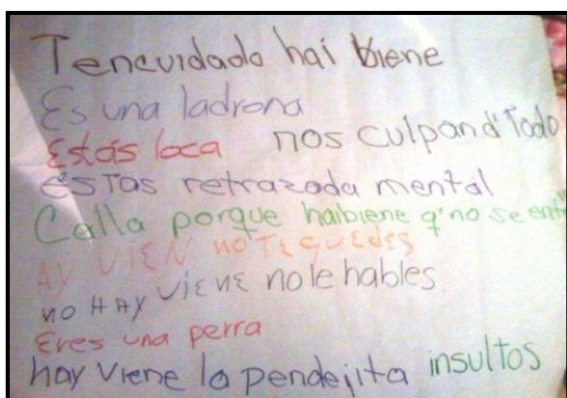 Tencuidado hai biene
Es una ladrona
Estás loca nos culpan d' Todo
ESTas retrazada mental
Calla porque haibiene q' no se ent
AY VIEN NOTE QUEDES
no HAY viene no le hables
Eres una perra
hay viene la pendejita insultos